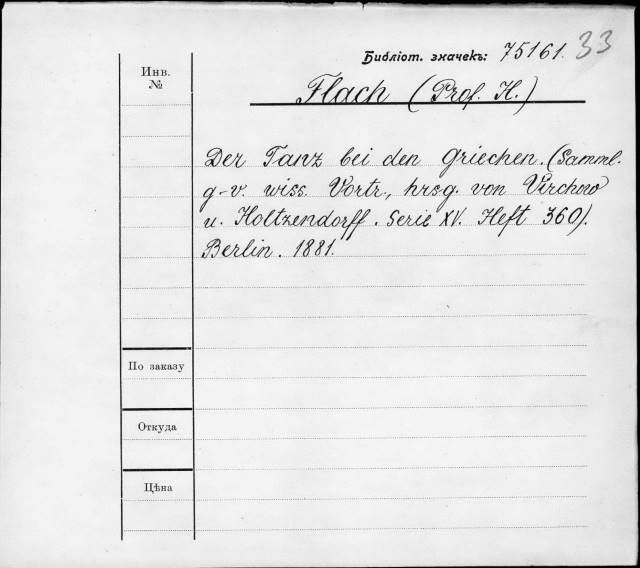 Библіот. значекъ: 75161. 33
Инв. №
Flach (Prof. H.)
Der Tanz bei den Griechen. (Samml.
g-v. wiss. Vortr., hrsg. von Virchow
u. Holtzendorff. Serie XV. Heft 360).
Berlin. 1881.
По заказу
Откуда
Цѣна